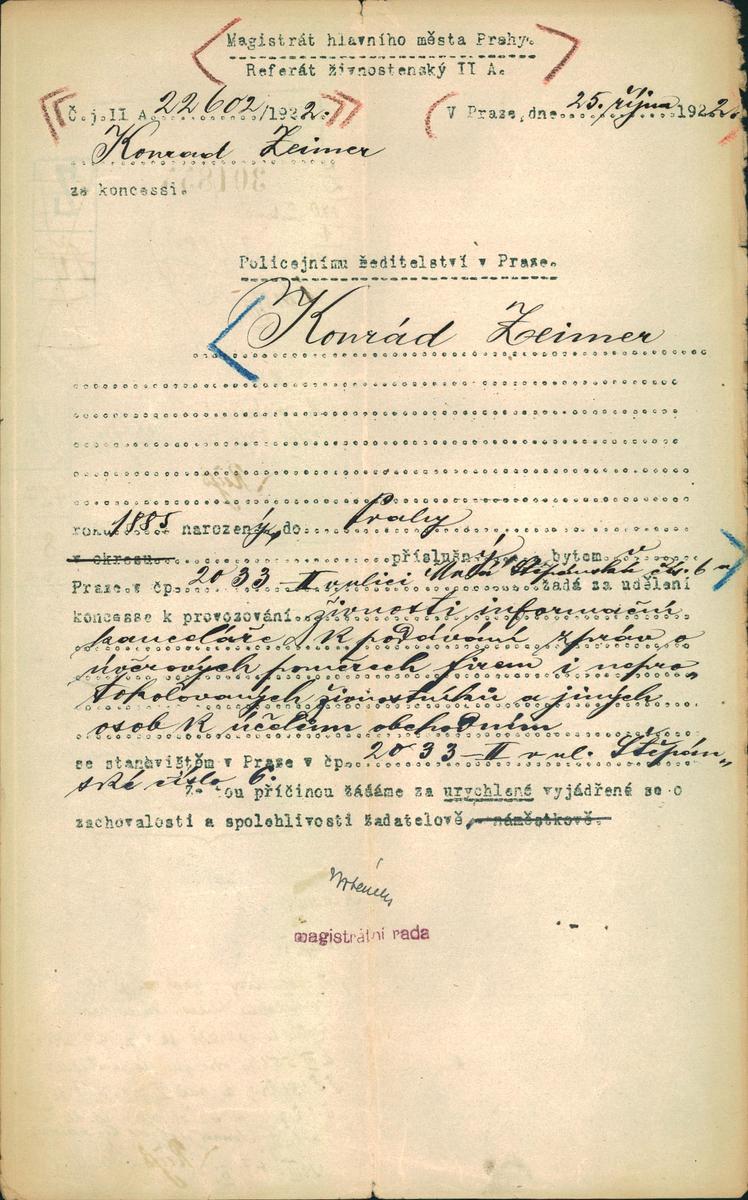 Magistrát hlavního města Prahy.
Referát živnostenský II A.
Č.j.II A. 22602/1922. V Praze, dne 25. října 1922.
Konrad Zeimer
za koncessi.
Policejnímu ředitelství v Praze.
Konrád Zeimer
roku 1885 narozený, do Prahy
v okresu příslušný, bytem v
Praze v čp. 2033-II v ulici Štěpánská čís. 6 žádá za udělení
koncesse k provozování živnosti informační
kanceláře k podávání zpráv o
úvěrových poměrech firem i nepro-
tokolovaných živnostníků a jiných
osob k účelům obchodním
se stanovištěm v Praze v čp. 2033-II v ul. Štěpán-
ské číslo 6.
Za tou příčinou žádáme za urychlené vyjádřené se o
zachovalosti a spolehlivosti žadatelově, náměstkově.
magistrátní rada